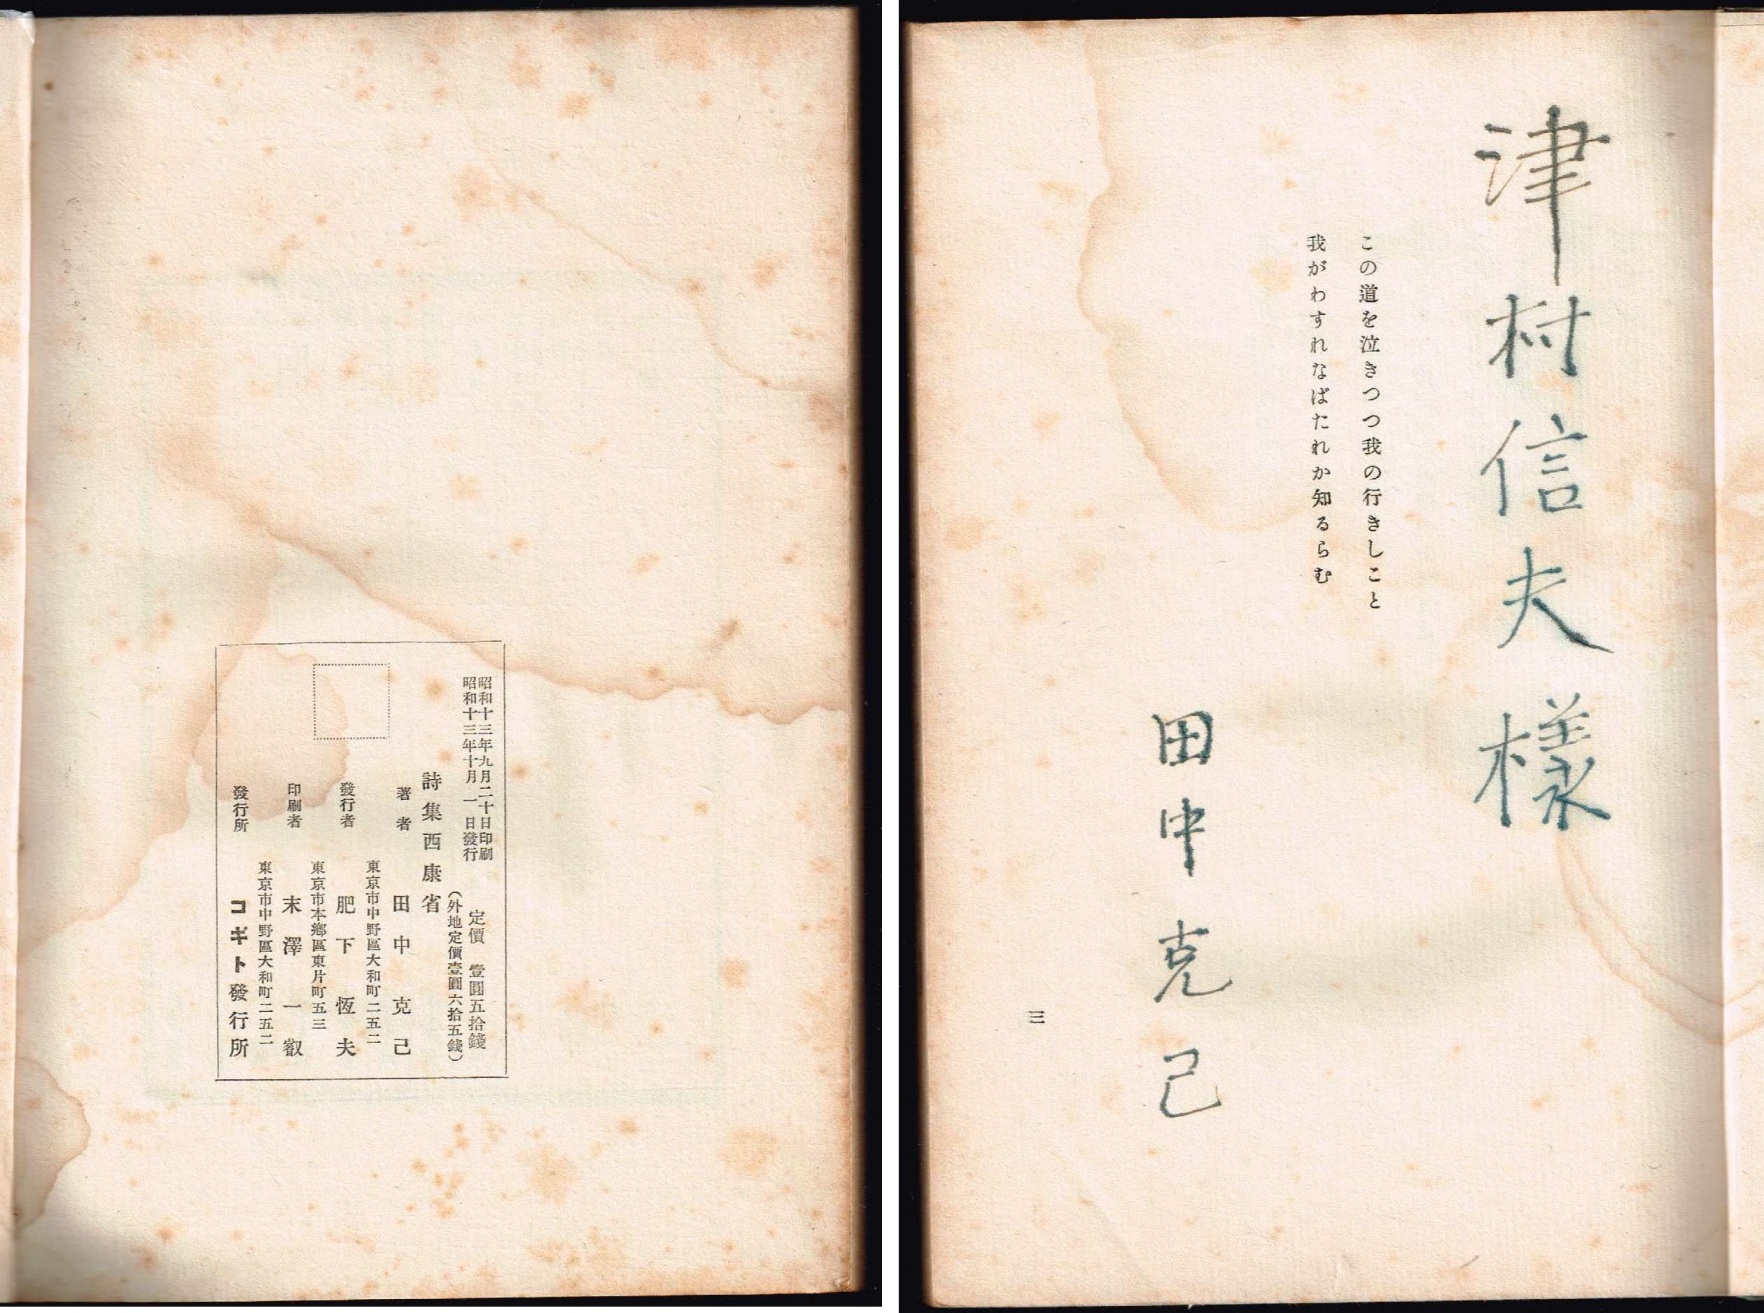 昭和十三年九月二十日印刷
昭和十三年十月 一 日發行
定價 壹圓五拾錢
(外地定價壹圓六拾五錢)
詩集西康省
著者 田中克己
東京市中野區大和町二五二
發行者 肥下恆夫
東京市本鄕區東片町五三
印刷者 末澤一叡
東京市中野區大和町二五二
發行所 コギト發行所
津村信夫樣
この道を泣きつつ我の行きしこと
我がわすれなばたれか知るらむ
田中克己
三